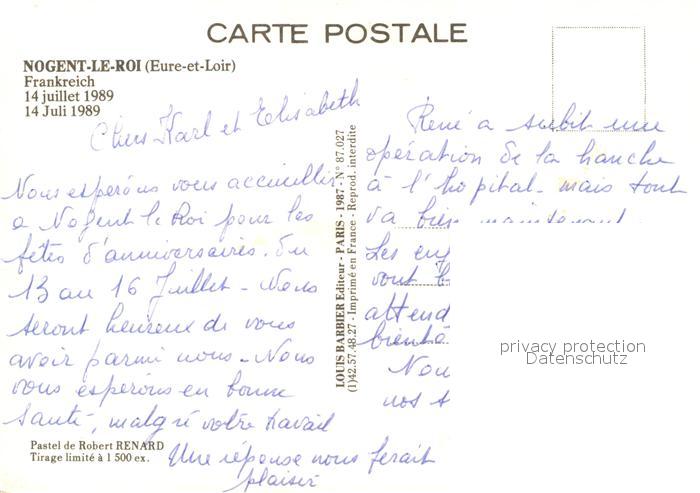 CARTE POSTALE
NOGENT-LE-ROI (Eure-et-Loir)
Frankreich
14 juillet 1989
14 Juli 1989
Chers Karl et Elisabeth
Nous espérons vous accueillir
a Nogent le Roi pour les
fêtes d'anniversaires. Du
13 au 16 Juillet - Nous
seront heureux de vous
avoir parmi nous - Nous
vous espérons en bonne
santé, malgré votre travail
Une réponse nous ferait
plaisir
Pastel de Robert RENARD
Tirage limité à 1 500 ex.
LOUIS BARBIER Editeur - PARIS - 1987 - N° 87.027
(1)42.57.48.27 - Imprimé en France - Reprod. interdite
René a subit une
opération de la hanche
à l'hopital - mais tout
va bien maintenant
Les
vont
attend
bientô
Nou
nos
privacy protection
Datenschutz